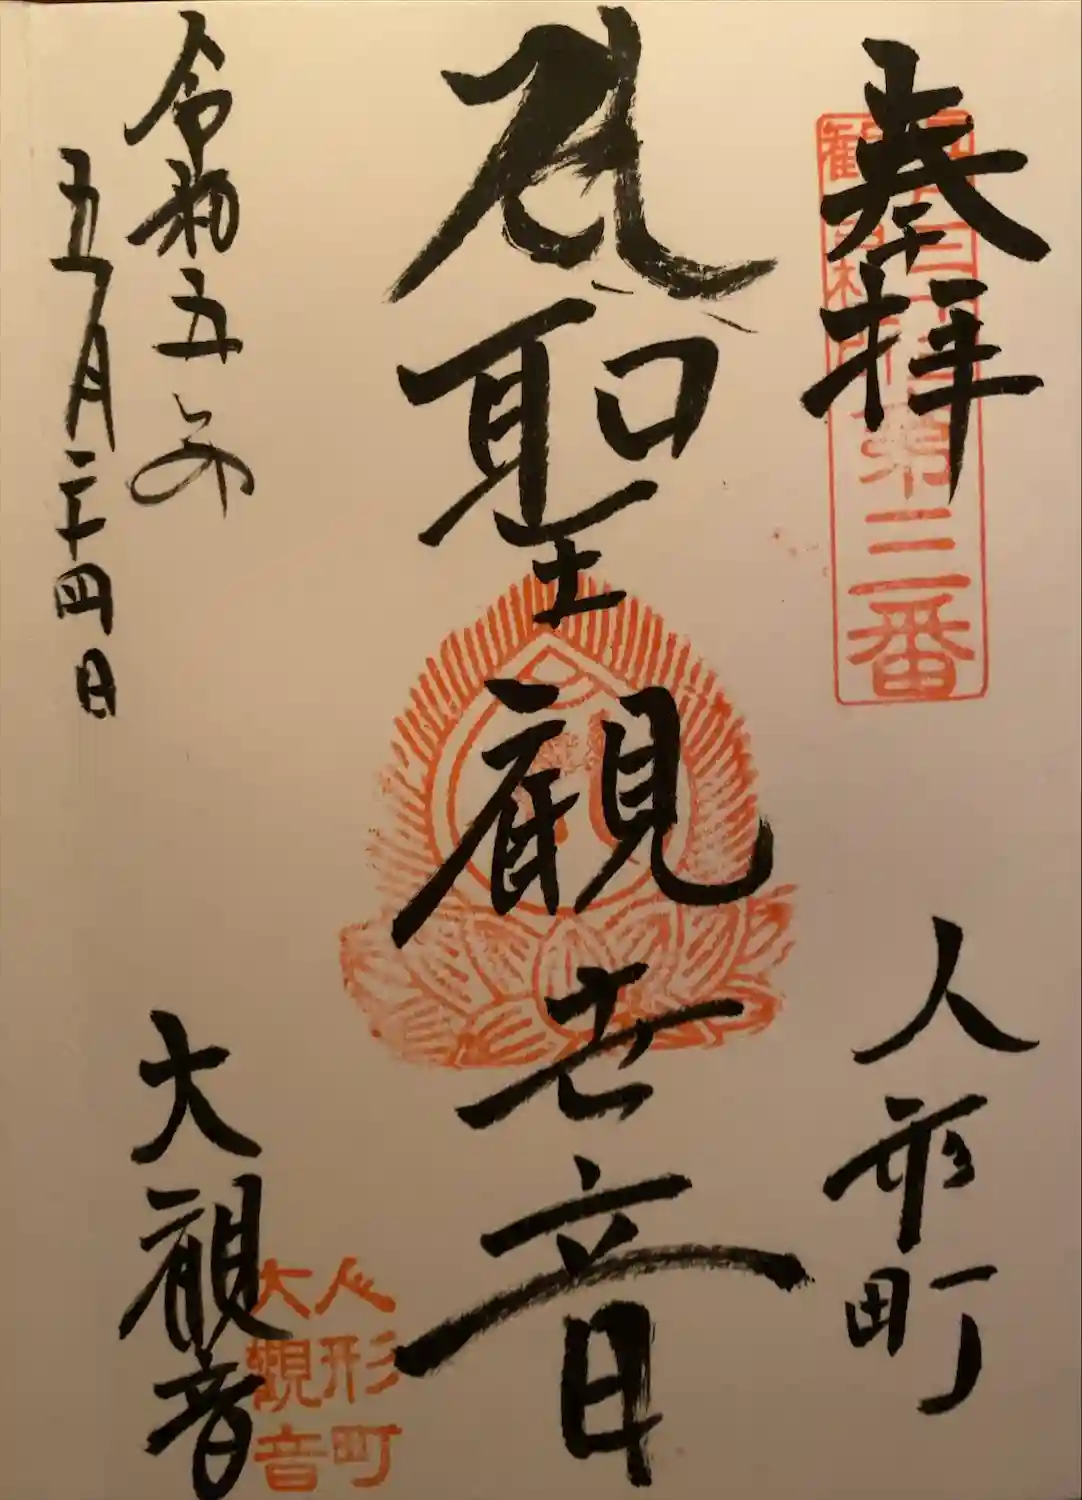 奉拝
第三番
人形町
聖観世音
令和五年
五月二十四日
大観音
人形町
大觀音